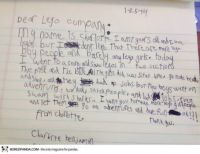 1-25-14
Dear Lego company:
My name is Charlotte. I am 7 years old and I love
legos but I don't like that there are more Lego
boy people and barely any Lego girls. today
I went to a store and saw legos in two sections
the pink and the blue. All the girls did was sit at home, go to the beach
and shop, and they had no jobs but the boys went on
adventures, worked, saved people, and had jobs,
even swam with sharks. I want you to make more lego girl people
and let them go on adventures and have fun ok!?!
Thank you.
From Charlotte
Charlotte Benjamin
BOREDPANDA.COM